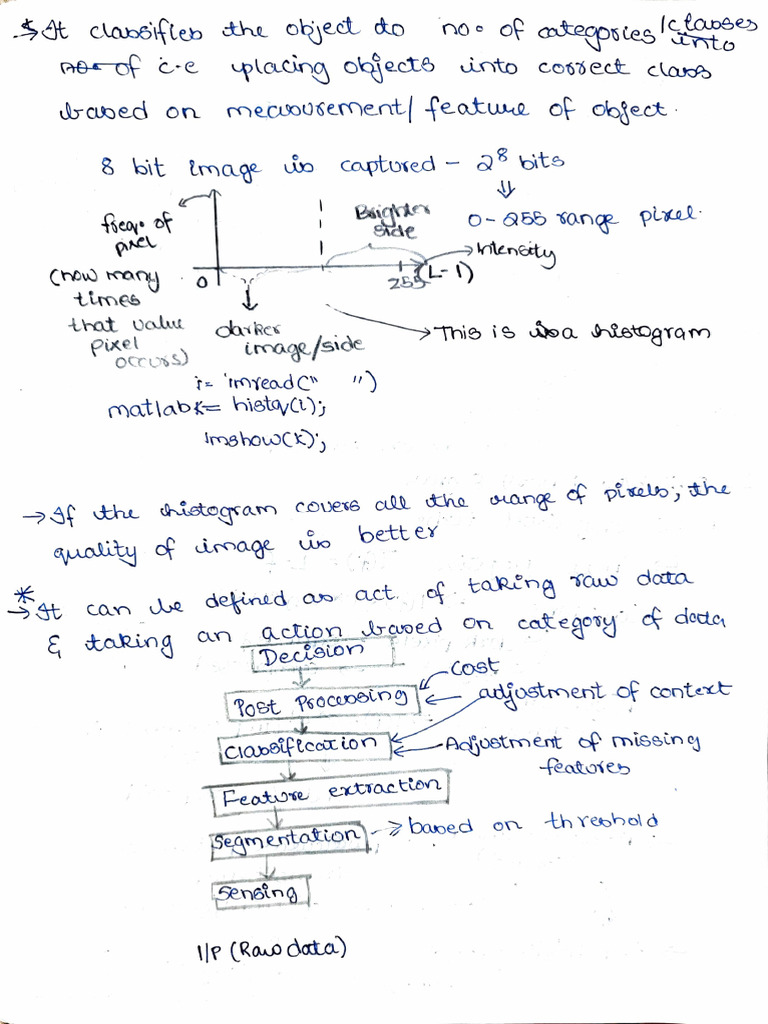 → It classifies the object do no. of categories/classes into
no. of i.e placing objects into correct class
based on measurement/ feature of object.
8 bit image is captured - 2⁸ bits
⇓
0-255 range pixel.
freq. of pixel
(how many times that value pixel occurs)
Brighter side
Intensity
0
255
(L-1)
darker image/side
→ This is a histogram
i= imread(" ")
matlab k= histq(i);
imshow(k);
→ If the histogram covers all the range of pixels, the
quality of image is better
*
→ It can be defined as act of taking raw data
& taking an action based on category of data
Decision
Post Processing
Cost
adjustment of context
Classification
Adjustment of missing
features
Feature extraction
Segmentation → based on threshold
Sensing
I/P (Raw data)